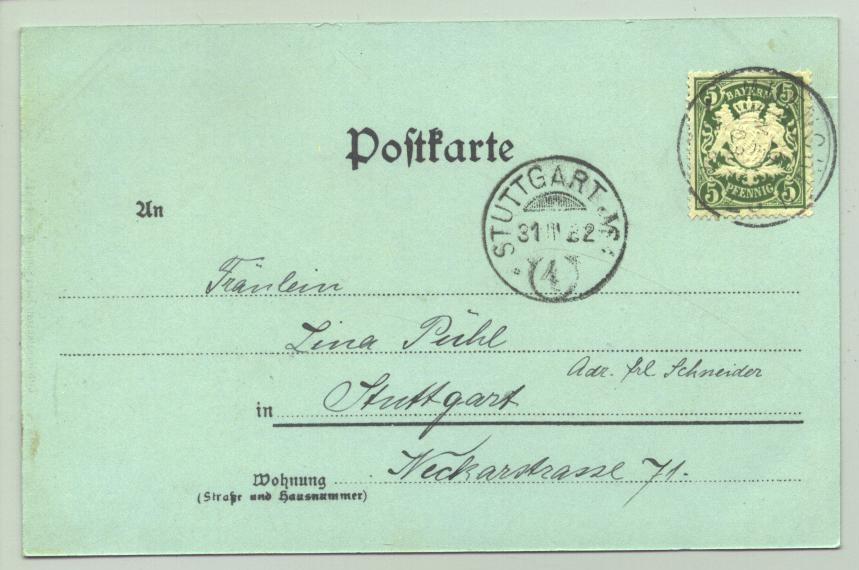 5 BAYERN 5
5 PFENNIG 5
Postkarte
STUTTGART
31 III 82
4
An
Fräulein
Lina Pühl
Adr. Frl Schneider
in Stuttgart
Neckarstrasse 71.
Wohnung
(Straße und Hausnummer)